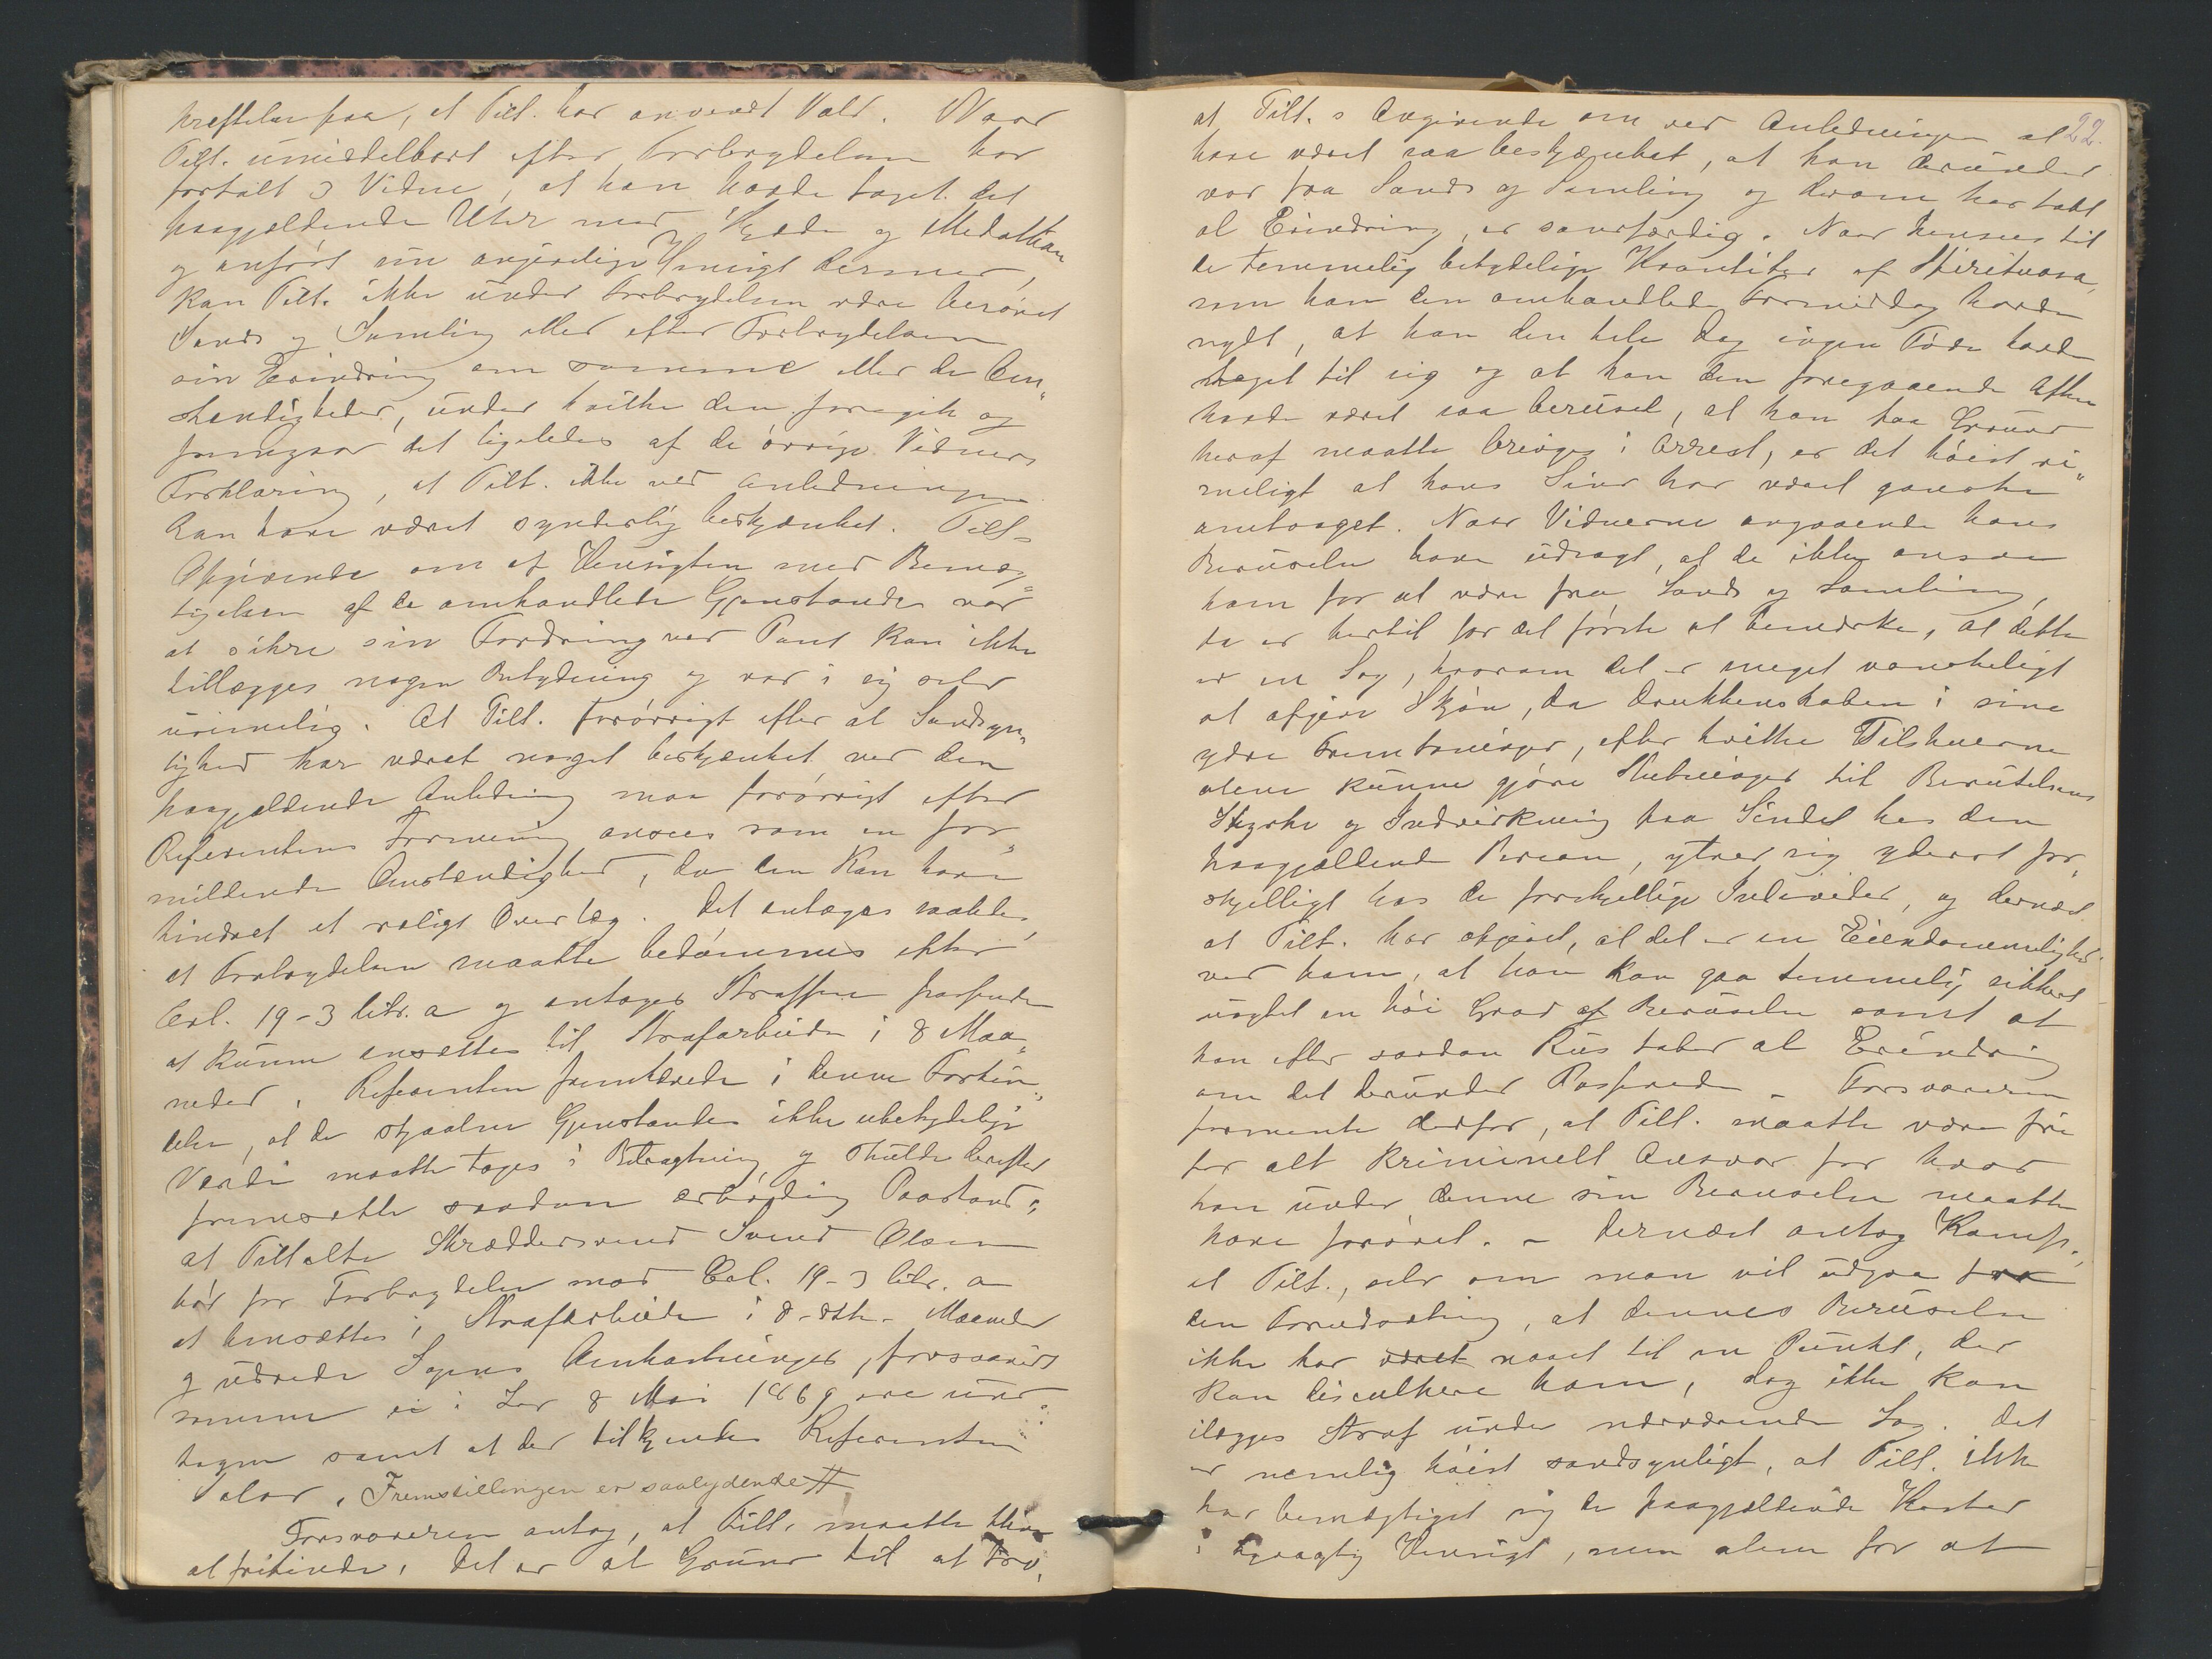 kræftelse paa, at Tilt. har anvendt Vold. Naar
Tilt. umiddelbart efter Forbrydelsen har
fortalt 3 Vidner, at han havde taget det
paagjældende Uhr med Kjæde og Medaillon
og anført sin angivelige Hensigt dermed,
kan Tilt. ikke under Forbrydelsen være berøvet
Sands og Samling eller efter Forbrydelsen
sin Erindring om samme eller de Om„
stændigheder, under hvilke den foregik og
fremgaar det ligeledes af de øvrige Vidners
Forklaring, at Tilt. ikke ved Anledningen
kan have været synderlig beskjænket. Tilt.s
Opgivende om at Hensigten med Bemæg„
tigelsen af de omhandlede Gjenstande var
at sikre sin Fordring ved Pant kan ikke
tillægges nogen Betydning og var i sig selv
urimelig. At Tilt. forøvrigt efter al Sandsyn„
lighed har været noget beskjænket ved den
paagjældende Anledning maa forøvrigt efter
Referentens Formening ansees som en for„
mildende Omstændighed, da den kan have
hindret et roligt Overlæg. Det antages saaledes,
at Forbrydelsen maatte bedømmes efter
Crl. 19-3 litr. a og antages Straffen passende
at kunne ansættes til Strafarbeide i 8 Maa„
neder. Referenten fremhævede i denne Forbin„
delse, at de stjaalne Gjenstandes ikke ubetydelige
Værdi maatte tages i Betragtning og skulde herefter
fremsætte saadan ærbødig Paastand:
at Tiltalte Skræddersvend Svend Olsen
bør for Forbrydelse mod Crl. 19-3 litr. a
at hensættes i Strafarbeide i 8-otte- Maaneder
og udrede Sagens Omkostninger, forsaavidt
samme ei i Lov 8 Mai 1869 ere und„
tagne samt at der tilkjendes Referenten
Salær. Fremstillingen er saalydende #
Forsvareren antog, at Tilt. maatte blive
at frifinde. Det er al Grund til at tro,
22.
at Tilt.s Angivende om ved Anledningen at
have været saa beskjænket, at han derunder
var fra Sands og Samling og derom har tabt
al Erindring, er sandfærdig. Naar henses til
de temmelig betydelige Kvantiteter af Spirituosa,
som han den omhandlede Formiddag havde
nydt, at han den hele Dag ingen Føde havde
taget til sig og at han den foregaaende Aften
havde været saa beruset, at han paa Grund
heraf maatte bringes i Arrest, er det høist ri„
meligt at hans Sind har været ganske
omtaaget. Naar Vidnerne angaaende hans
Beruselse have udsagt, at de ikke ansaa
ham for at være fra Sands og Samling,
da er hertil for det første at bemærke, at dette
er en Sag, hvorom det er meget vanskeligt
at afgive Skjøn, da Drukkenskaben i sine
ydre Fremtoninger, efter hvilke Tilskuerne
alene kunne gjøre Slutninger til Beruselsens
Styrke og Indvirkning paa Sindet hos den
paagjældende Person, ytrer sig yderst for„
skjelligt hos de forskjellige Individer, og dernæst
at Tilt. har opgivet, at det er en Eiendommelighed
ved ham, at han kan gaa temmelig sikkert
uagtet en høi Grad af Beruselse samt at
han efter saadan Rus taber al Erindring
om det derunder Passerede. Forsvareren
formente derfor, at Tilt. maatte være fri
for alt kriminelt Ansvar for hvad
han under denne sin Beruselse maatte
have forøvet. – Dernæst antog Komp.,
at Tilt., selv om man vil udgaa fra
den Forudsætning, at dennes Beruselse
ikke har været naaet til en Punkt, der
kan disculpere ham, dog ikke kan
ilægges Straf under nærværende Sag. Det
er nemlig høist sandsynligt, at Tilt. ikke
har bemægtiget sig de paagjældende Koster
i svigagtig Hensigt, men alene for at